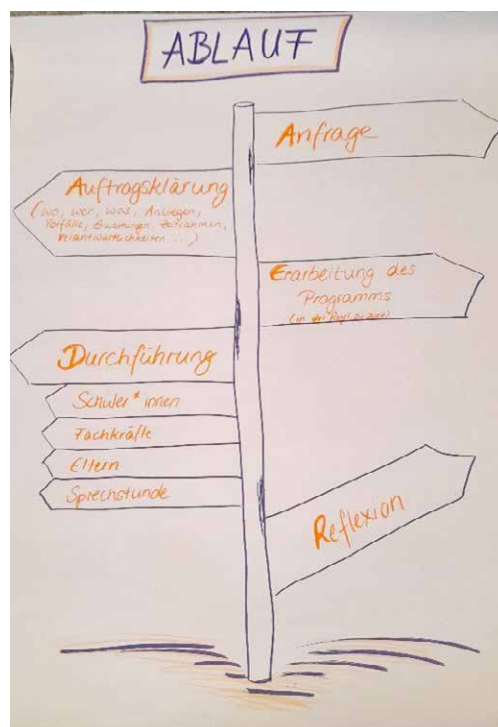 ABLAUF
Anfrage
Auftragsklärung
(wo, wer, was, Anliegen,
Vorfälle, Erwartungen, Zeitrahmen,
Verantwortlichkeiten ...)
Erarbeitung des
Programms
(in der Regel zu zweit)
Durchführung
Schüler*innen
Fachkräfte
Eltern
Sprechstunde
Reflexion